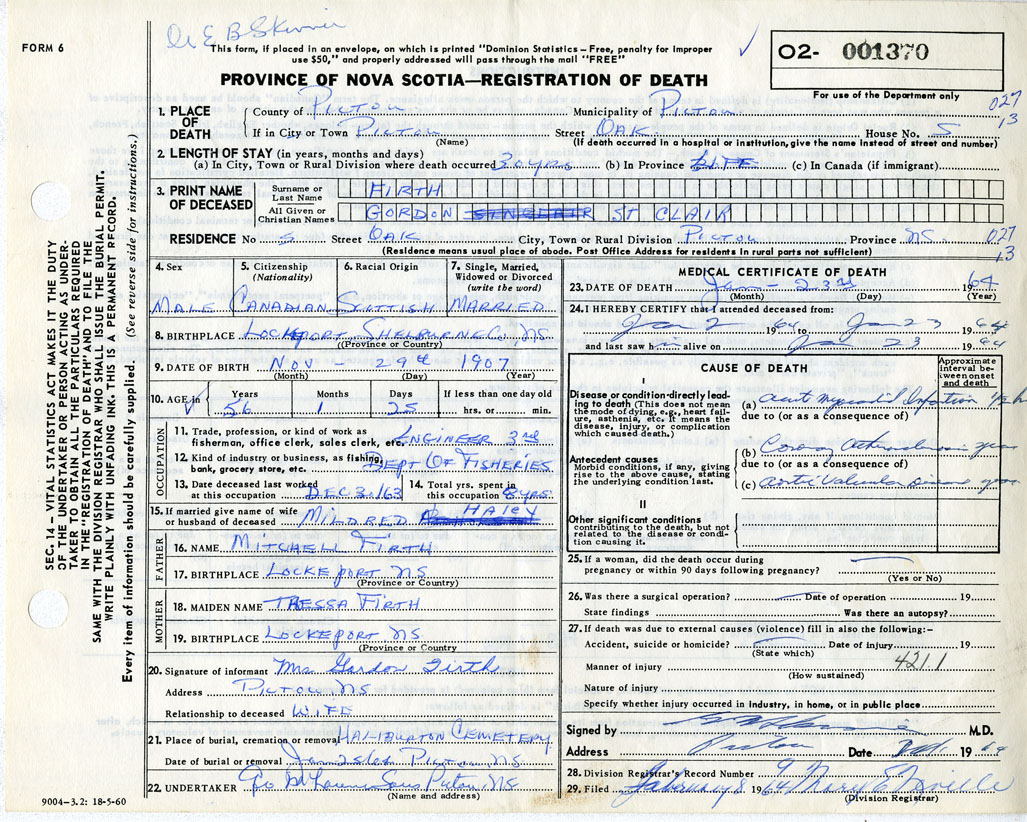 Dr E B Skinner
FORM 6
This form, if placed in an envelope, on which is printed "Dominion Statistics – Free, penalty for improper
use $50," and properly addressed will pass through the mail "FREE"
O2- 001370
For use of the Department only
PROVINCE OF NOVA SCOTIA—REGISTRATION OF DEATH
027
13
1. PLACE OF DEATH
County of PICTOU Municipality of PICTOU
If in City or Town PICTOU Street OAK House No. 5
(Name) (If death occurred in a hospital or institution, give the name instead of street and number)
2. LENGTH OF STAY (in years, months and days)
(a) In City, Town or Rural Division where death occurred 30 yrs (b) In Province LIFE (c) In Canada (if immigrant)
3. PRINT NAME OF DECEASED
Surname or Last Name FIRTH
All Given or Christian Names GORDON SINCLAIR ST CLAIR
RESIDENCE No 5 Street OAK City, Town or Rural Division PICTOU Province NS
027
13
(Residence means usual place of abode. Post Office Address for residents in rural parts not sufficient)
4. Sex MALE
5. Citizenship (Nationality) CANADIAN
6. Racial Origin SCOTTISH
7. Single, Married, Widowed or Divorced (write the word) MARRIED
8. BIRTHPLACE LOCKEPORT SHELBURNE Co., NS
(Province or Country)
9. DATE OF BIRTH NOV – 29th 1907
(Month) (Day) (Year)
10. AGE in Years 56 Months 1 Days 25 If less than one day old hrs. or min.
OCCUPATION
11. Trade, profession, or kind of work as
fisherman, office clerk, sales clerk, etc. ENGINEER 3rd
12. Kind of industry or business, as fishing,
bank, grocery store, etc. DEPT OF FISHERIES
13. Date deceased last worked
at this occupation DEC 30/63
14. Total yrs. spent in
this occupation 8 yrs.
15. If married give name of wife
or husband of deceased MILDRED HALEY
FATHER
16. NAME MITCHELL FIRTH
17. BIRTHPLACE LOCKEPORT NS
(Province or Country)
MOTHER
18. MAIDEN NAME TRESSA FIRTH
19. BIRTHPLACE LOCKEPORT NS
(Province or Country
20. Signature of informant Mrs Gordon Firth
Address PICTOU NS
Relationship to deceased WIFE
21. Place of burial, cremation or removal HALIBURTON CEMETERY
Date of burial or removal Pictou, NS
22. UNDERTAKER Sons Pictou, NS
(Name and address)
9004–3.2: 18-5-60
MEDICAL CERTIFICATE OF DEATH
23. DATE OF DEATH Jan – 23rd 1964
(Month) (Day) (Year)
24. I HEREBY CERTIFY that I attended deceased from:
Jan 2 1964 to Jan 23 1964
and last saw h im alive on Jan 23 1964
CAUSE OF DEATH
Approximate interval between onset and death
I
Disease or condition directly leading to death (This does not mean the mode of dying, e.g., heart failure, asthenia, etc. It means the disease, injury, or complication which caused death.)
(a) Acute Myocardial Infarction 1/2 hr
due to (or as a consequence of)
Antecedent causes
Morbid conditions, if any, giving rise to the above cause, stating the underlying condition last.
(b) Coronary Atherosclerosis years
due to (or as a consequence of)
(c) Aortic Valvular Disease years
II
Other significant conditions
contributing to the death, but not related to the disease or condition causing it.
25. If a woman, did the death occur during
pregnancy or within 90 days following pregnancy?
(Yes or No)
26. Was there a surgical operation? Date of operation 19
State findings Was there an autopsy?
27. If death was due to external causes (violence) fill in also the following:–
Accident, suicide or homicide? Date of injury 19
(State which)
4211
Manner of injury
(How sustained)
Nature of injury
Specify whether injury occurred in industry, in home, or in public place
Signed by M.D.
Address Pictou Date 1964
28. Division Registrar's Record Number 9
29. Filed February 8 1964 Mary E Neville
(Division Registrar)
SEC. 14 – VITAL STATISTICS ACT MAKES IT THE DUTY
OF THE UNDERTAKER OR PERSON ACTING AS UNDER-
TAKER TO OBTAIN ALL THE PARTICULARS REQUIRED
IN THE "REGISTRATION OF DEATH" AND TO FILE THE
SAME WITH THE DIVISION REGISTRAR WHO SHALL ISSUE THE BURIAL PERMIT.
WRITE PLAINLY WITH UNFADING INK. THIS IS A PERMANENT RECORD.
Every item of information should be carefully supplied. (See reverse side for instructions.)